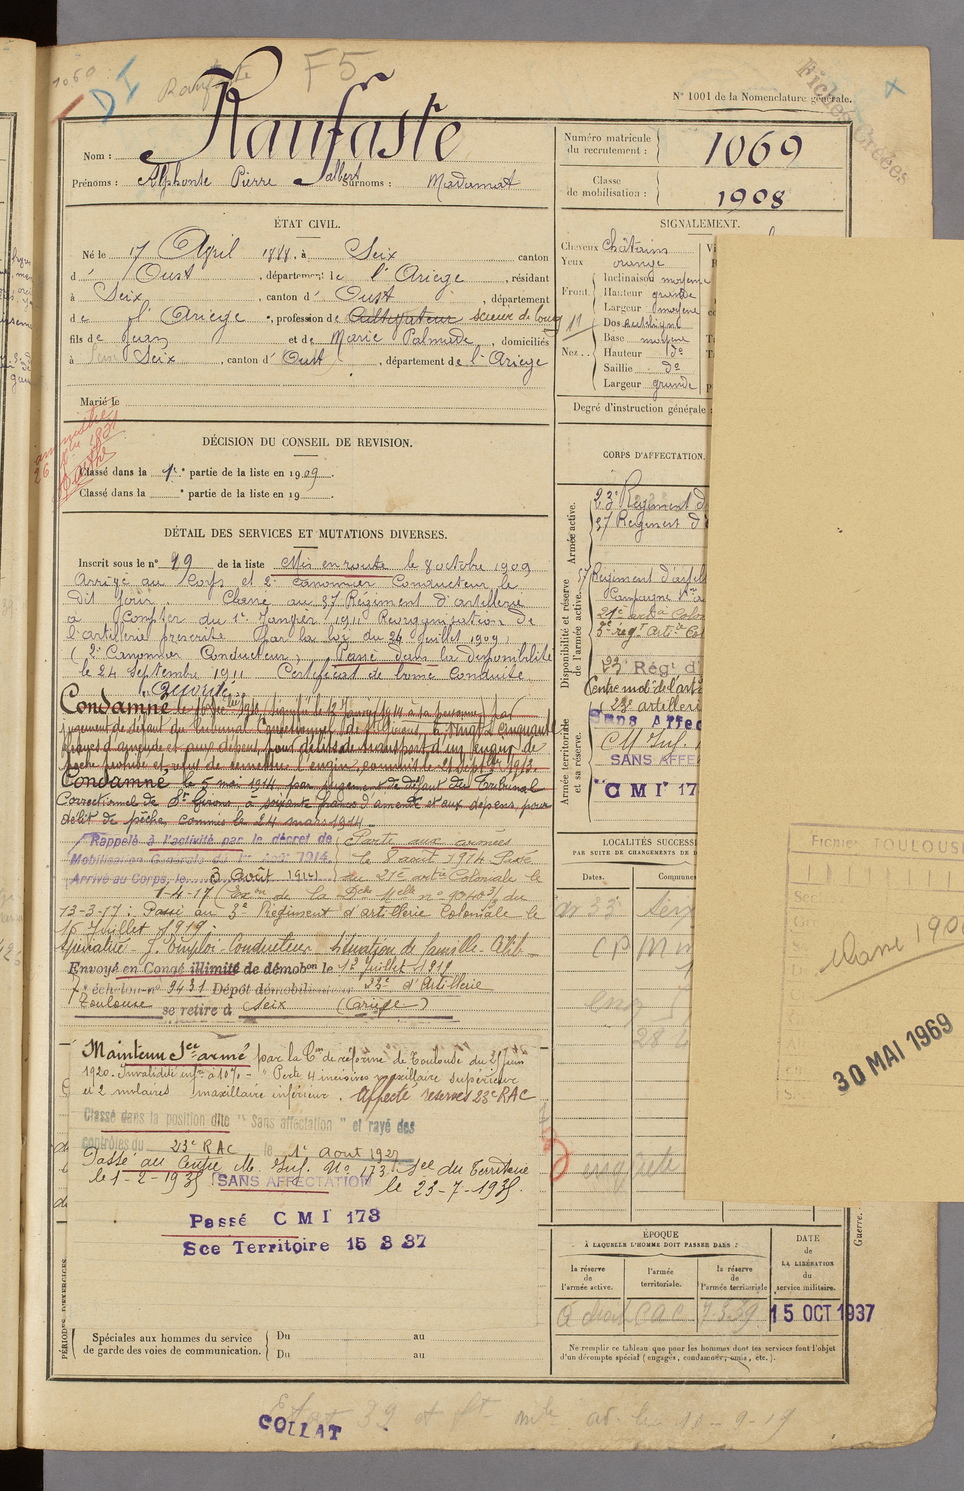 1069
F5
Raufaste
N° 1001 de la Nomenclature générale.
Fiches Créées
Nom : Raufaste
Prénoms : Alphonse Pierre Jalbert Surnoms : Madamat
Numéro matricule du recrutement : 1069
Classe de mobilisation : 1908
ÉTAT CIVIL.
Né le 17 Avril 1888, à Seix canton
d' Oust, département de l'Ariège, résidant
à Seix, canton d' Oust, département
de l'Ariège, profession de Cultivateur scieur de long
fils de Jean et de Marie Palmade, domiciliés
à Seix, canton d' Oust, département de l'Ariège
Marié le
SIGNALEMENT.
Cheveux châtains
Yeux orange
Front. Inclinaison moyenne
Hauteur grande
Largeur moyenne
Nez .. Dos rectiligne
Base moyenne
Hauteur do
Saillie do
Largeur grande
Degré d'instruction générale :
DÉCISION DU CONSEIL DE REVISION.
Classé dans la 1re partie de la liste en 1909.
Classé dans la e partie de la liste en 19
DÉTAIL DES SERVICES ET MUTATIONS DIVERSES.
Inscrit sous le n° 99 de la liste Mis en route le 8 octobre 1909
Arrivé au Corps et 2e canonnier Conducteur le
dit jour. Passé au 57 Régiment d'artillerie
à compter du 1er Janvier 1911 Réorganisation de
l'artillerie prescrite par la loi du 24 juillet 1909,
(2e Canonnier Conducteur) Passé dans la disponibilité
le 24 septembre 1911 Certificat de bonne Conduite
"Accordé"
Condamné le 1913 (signifié le 12 Janvier 1914 à sa personne) par
jugement de défaut du tribunal Correctionnel de St Girons, à vingt cinquante
francs d'amende et aux dépens, pour délits de transport d'un engin de
pêche prohibé et refus de remettre l'engin, commis le 21 septbre 1913.
Condamné le 5 mai 1914 par jugement de défaut du Tribunal
Correctionnel de St Girons à soixante francs d'amende et aux dépens, pour
délit de pêche, commis le 24 mars 1914
Rappelé à l'activité par le décret de
Mobilisation Générale du 1er août 1914.
Arrivé au Corps, le 3 Août 1914
Parti aux armées
le 8 août 1914 Passé
au 21e artie Coloniale le
1-4-17 (Exon de la Dche Melle n° 9040 3/3 du
13-3-17 : Passé au 3e Régiment d'artillerie Coloniale le
16 Juillet 1919 :
Spécialité - J. Emploi Conducteur Situation de famille - Célib.
Envoyé en Congé illimité de démobon le 1er juillet 1919
7e échelon n° 9431 Dépôt démobilisateur 23e d'Artillerie
Toulouse se retire à Seix (Ariège)
Maintenu Sce armé par la Con de réforme de Toulouse du 25 juin
1920. Invalidité infre à 10% - Perte 4 incisives maxillaire supérieur
et 2 molaires maxillaire inférieur. Affecté réserves 23e RAC
Classé dans la position dite "Sans affectation" et rayé des
contrôles du 23e RAC le 1er Aout 1927
Passé au Centre M. Inf. No 173. Sce du Territoire
le 1-2-1935 SANS AFFECTATION le 23-7-1935.
Passé C M I 173
Sce Territoire 15 3 37
CORPS D'AFFECTATION.
Armée active.
23e Régiment d
57 Régiment d'
Disponibilité et réserve de l'armée active.
57 Régiment d'artill
21e artie Colon
3e régt Artie Col
23e Régt d'
Centre mob. de l'art
23e artilleri
Armée territoriale et sa réserve.
Sans Affec
CM Inf.
SANS AFFE
"CMI 17
LOCALITÉS SUCCESSI
PAR SUITE DE CHANGEMENTS DE D
Dates.
Commune
33 Seix
ÉPOQUE
À LAQUELLE L'HOMME DOIT PASSER DANS :
la réserve de l'armée active.
l'armée territoriale.
la réserve de l'armée territoriale
DATE de LA LIBÉRATION du service militaire.
15 OCT 1937
Ne remplir ce tableau que pour les hommes dont les services font l'objet
d'un décompte spécial (engagés, condamnés, omis, etc.).
PÉRIODES D'EXERCICES
Spéciales aux hommes du service
de garde des voies de communication.
Du au
Du au
COLLAT
Guerre.
Fichier TOULOUSE
classe 190
30 MAI 1969